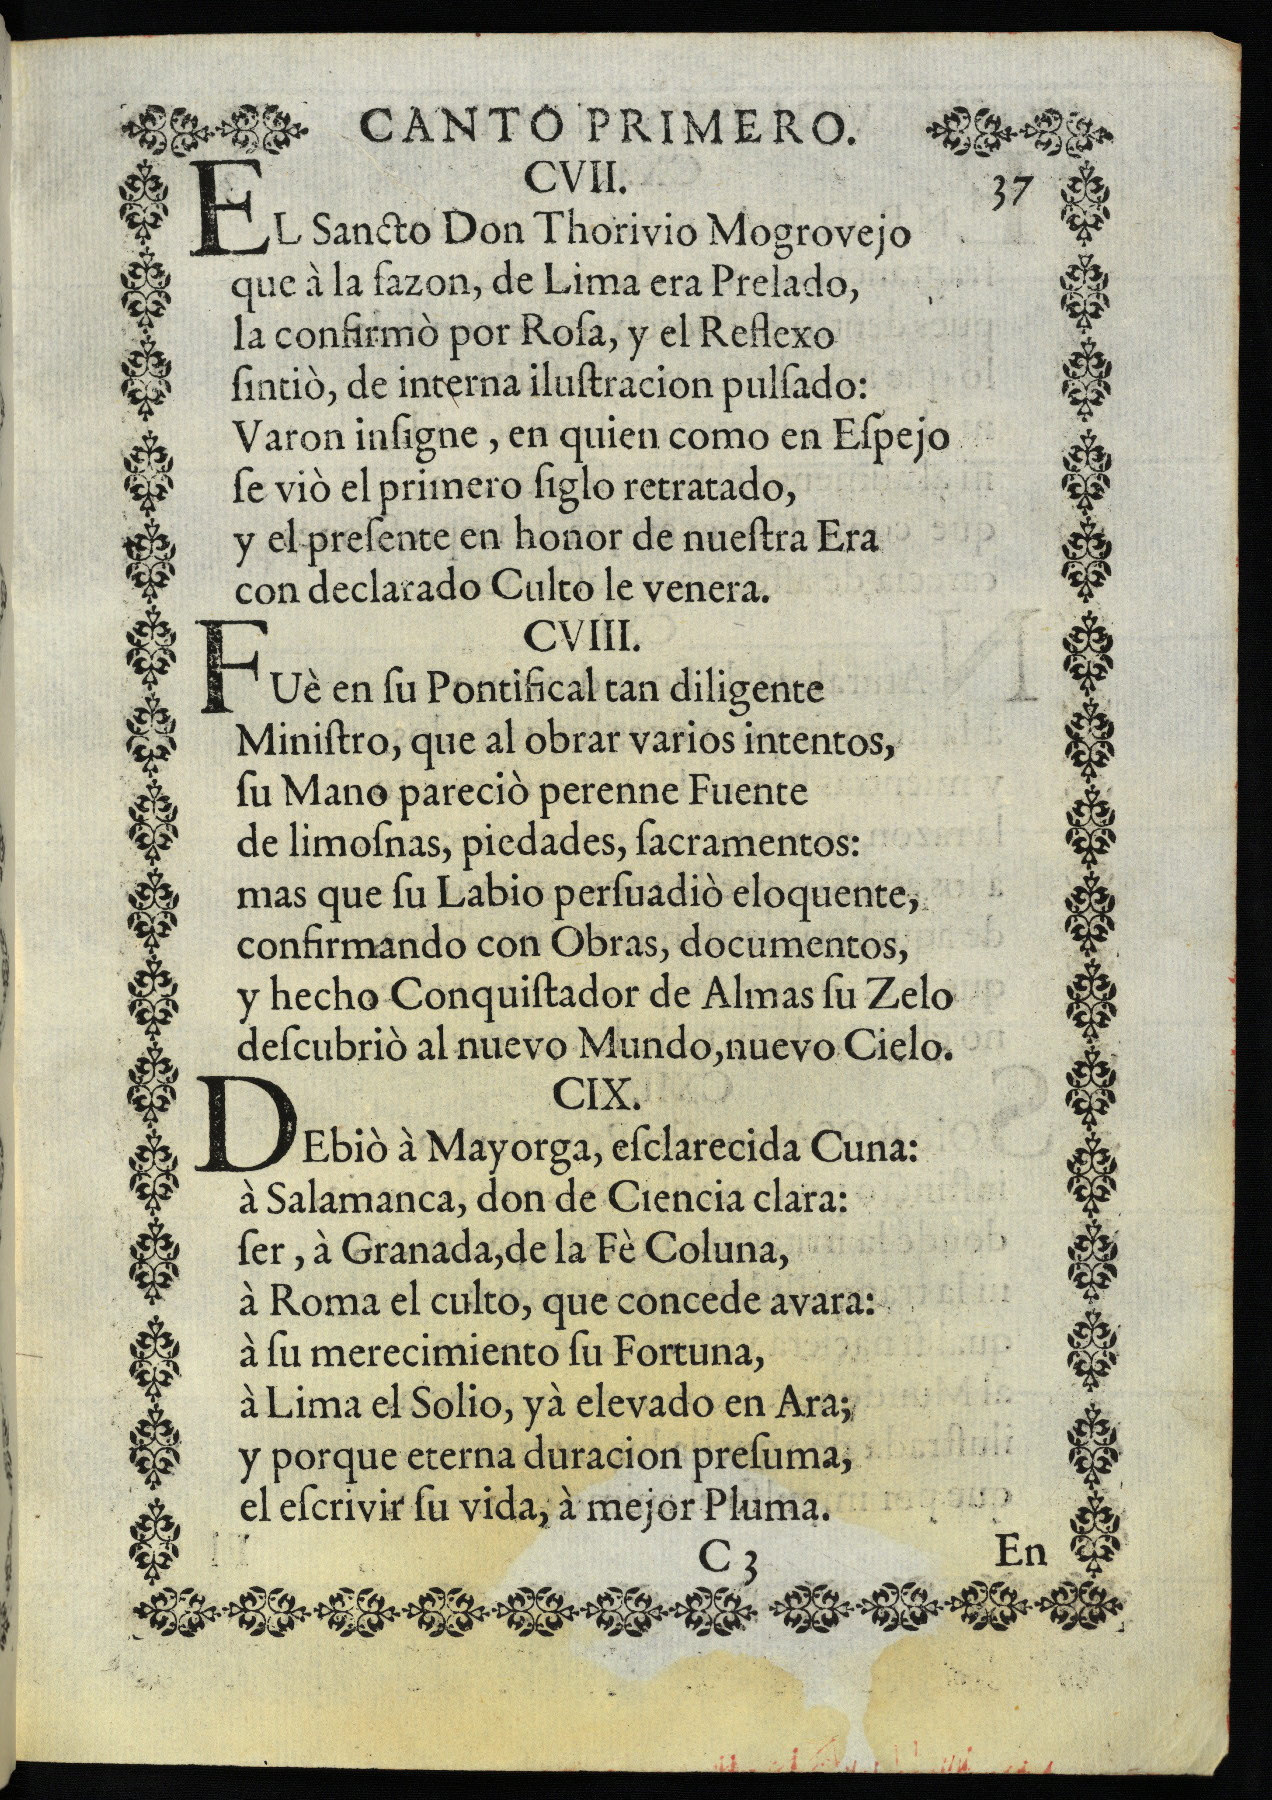 CANTO PRIMERO.
CVII.
37
EL Sancto Don Thorivio Mogrovejo
que à la ſazon, de Lima era Prelado,
la confirmò por Roſa, y el Reflexo
ſintiò, de interna iluſtracion pulſado:
Varon inſigne, en quien como en Eſpejo
ſe viò el primero ſiglo retratado,
y el preſente en honor de nueſtra Era
con declarado Culto le venera.
CVIII.
FUè en ſu Pontifical tan diligente
Miniſtro, que al obrar varios intentos,
ſu Mano pareciò perenne Fuente
de limoſnas, piedades, ſacramentos:
mas que ſu Labio perſuadiò eloquente,
confirmando con Obras, documentos,
y hecho Conquiſtador de Almas ſu Zelo
deſcubriò al nuevo Mundo, nuevo Cielo.
CIX.
DEbiò à Mayorga, eſclarecida Cuna:
à Salamanca, don de Ciencia clara:
ſer, à Granada, de la Fè Coluna,
à Roma el culto, que concede avara:
à ſu merecimiento ſu Fortuna,
à Lima el Solio, yà elevado en Ara;
y porque eterna duracion preſuma,
el eſcrivir ſu vida, à mejor Pluma.
C 3
En